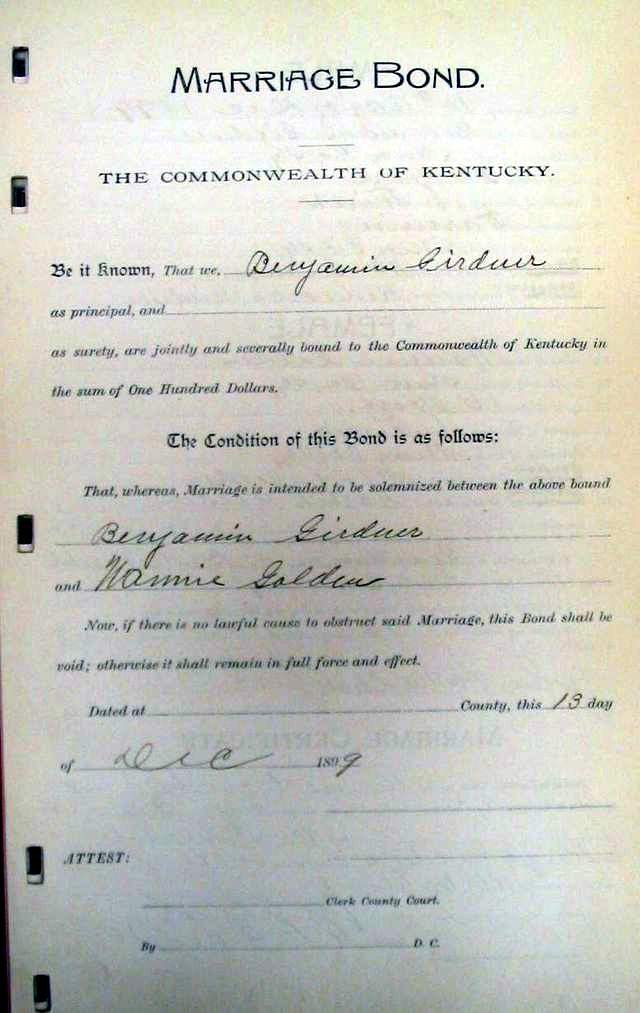 MARRIAGE BOND.
THE COMMONWEALTH OF KENTUCKY.
Be it Known, That we, Benjamin Girdner
as principal, and
as surety, are jointly and severally bound to the Commonwealth of Kentucky in
the sum of One Hundred Dollars.
The Condition of this Bond is as follows:
That, whereas, Marriage is intended to be solemnized between the above bound
Benjamin Girdner
and Nannie Golden
Now, if there is no lawful cause to obstruct said Marriage, this Bond shall be
void; otherwise it shall remain in full force and effect.
Dated at County, this 13 day
of Dec 1899
ATTEST:
Clerk County Court.
By D. C.